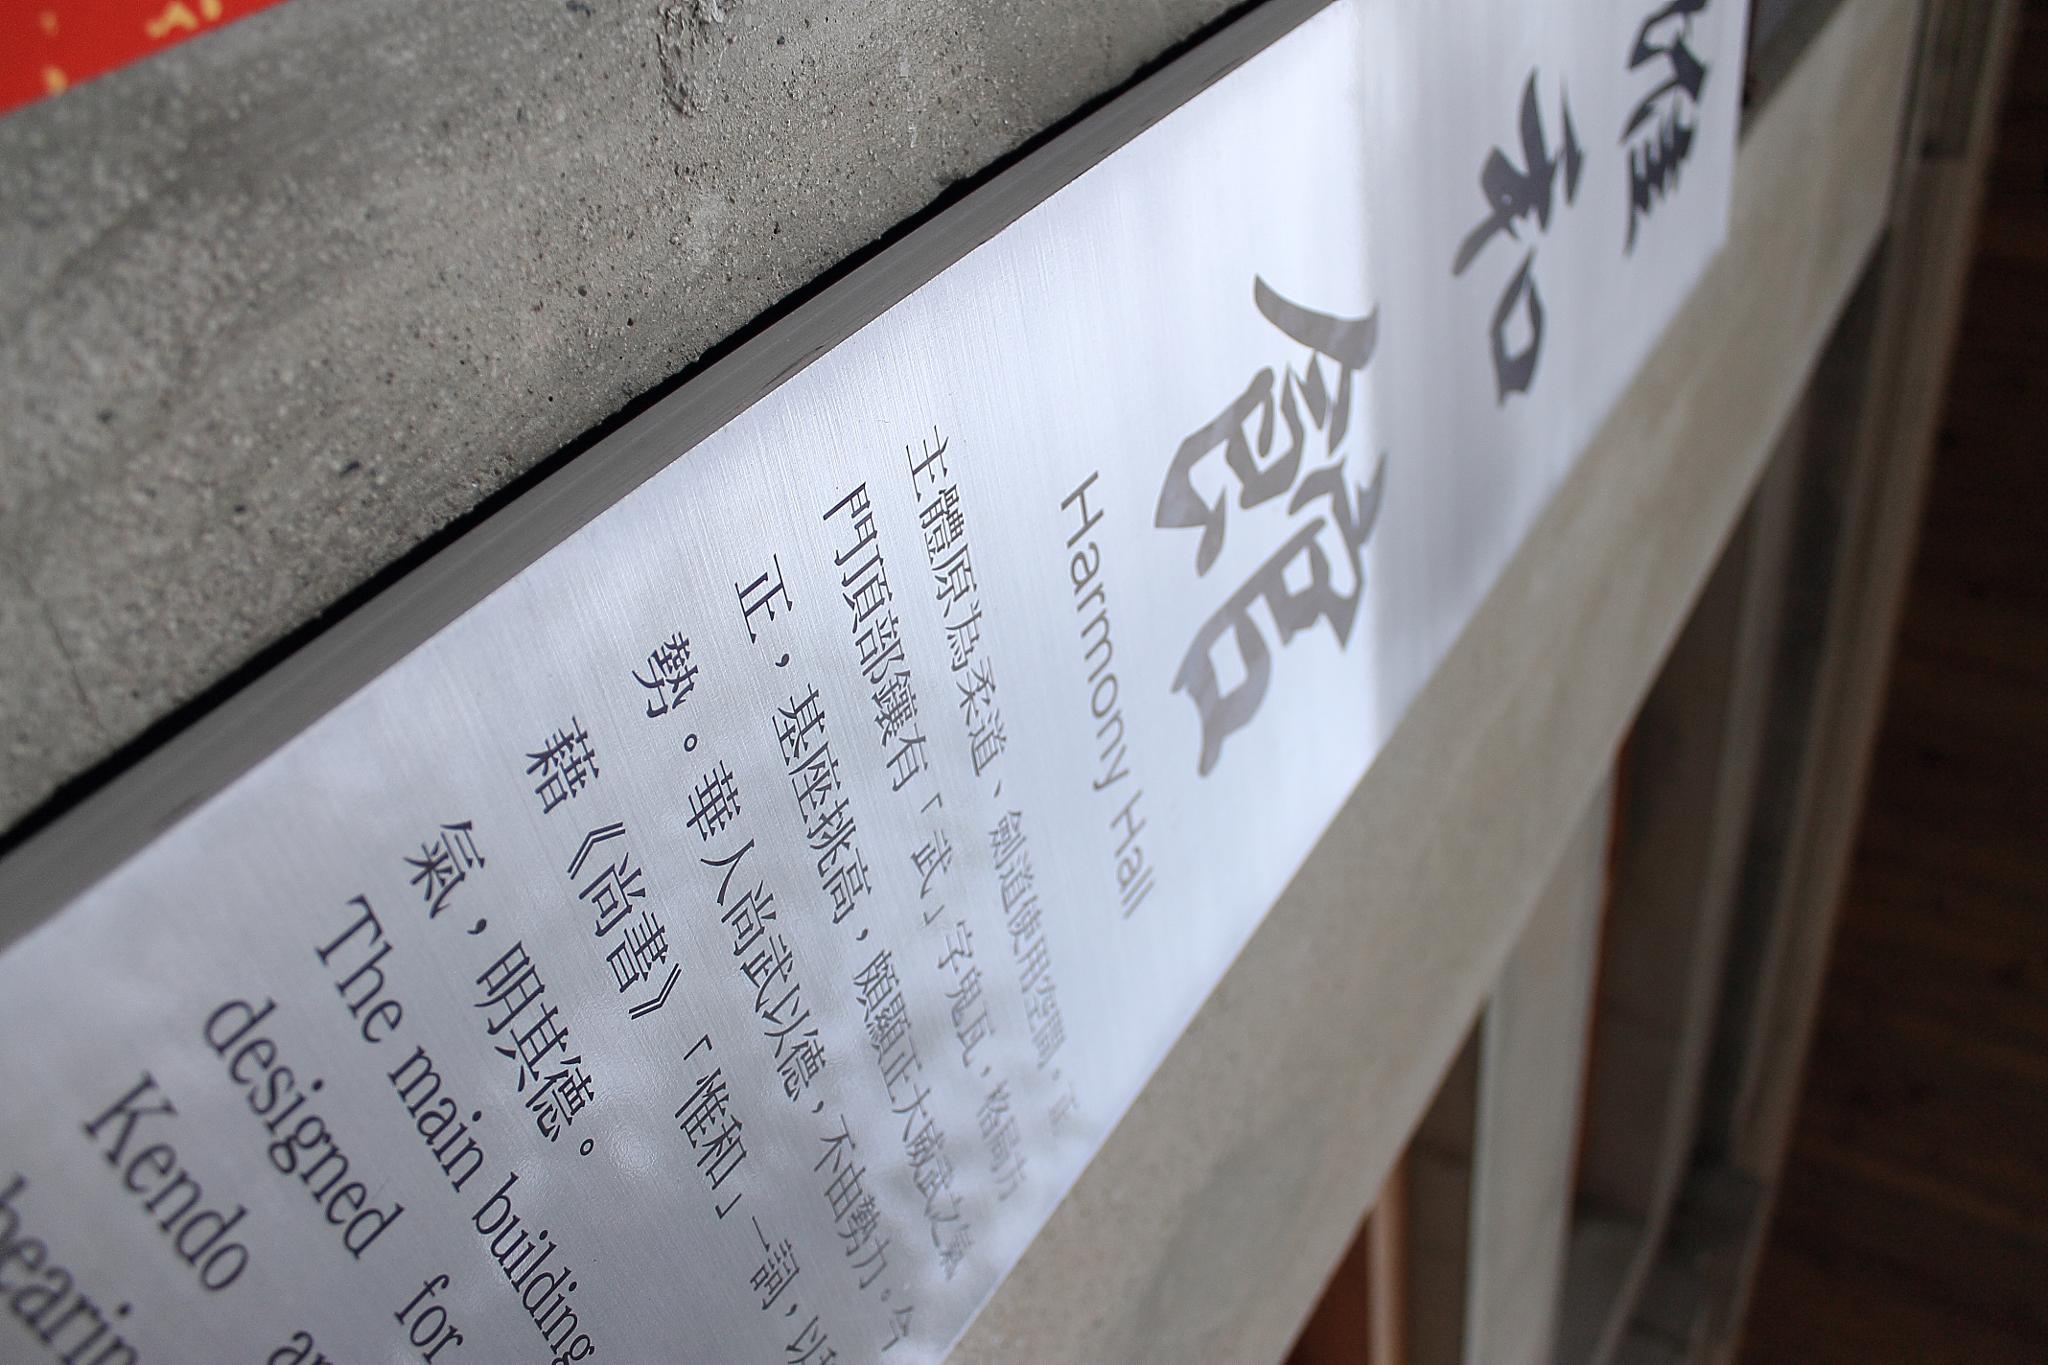 惟和館
Harmony Hall
主體原為柔道、劍道使用空間。正
門頂部鑲有「武」字鬼瓦，格局方
正，基座挑高，頗顯正大威武之氣
勢。華人尚武以德，不由勢力。今
藉《尚書》「惟和」一詞，以
氣，明其德。
The main building
designed for
Kendo